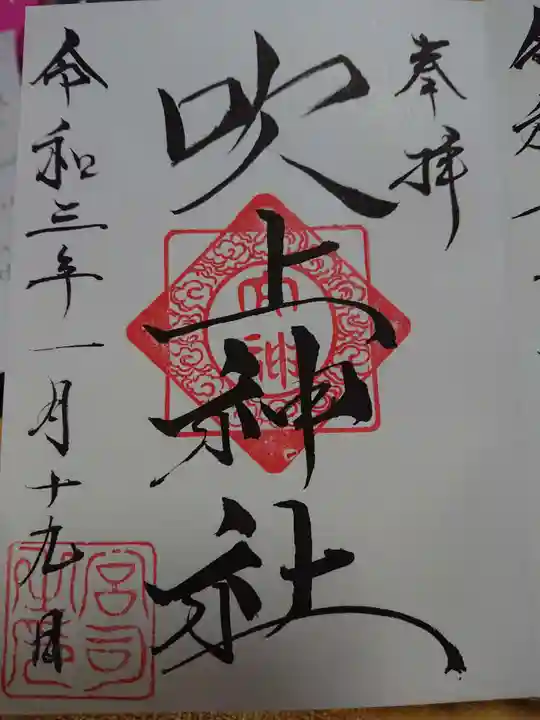 奉拝
吹上神社
令和三年一月十九日
宮司